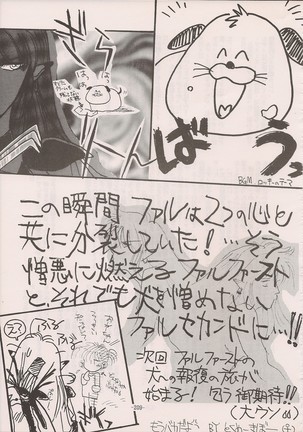 ばうっ
BGM ロッキーのテーマ
この瞬間 ファルは2つの心と
共に分裂していた!…そう
憎悪に燃えるファルファーストと
、それでも犬を憎めない
ファルセカンドに…!!
次回 ファルファーストの
犬への報復の旅が
始まる! 乞う御期待!!
(大ウソ
ふる
ふる